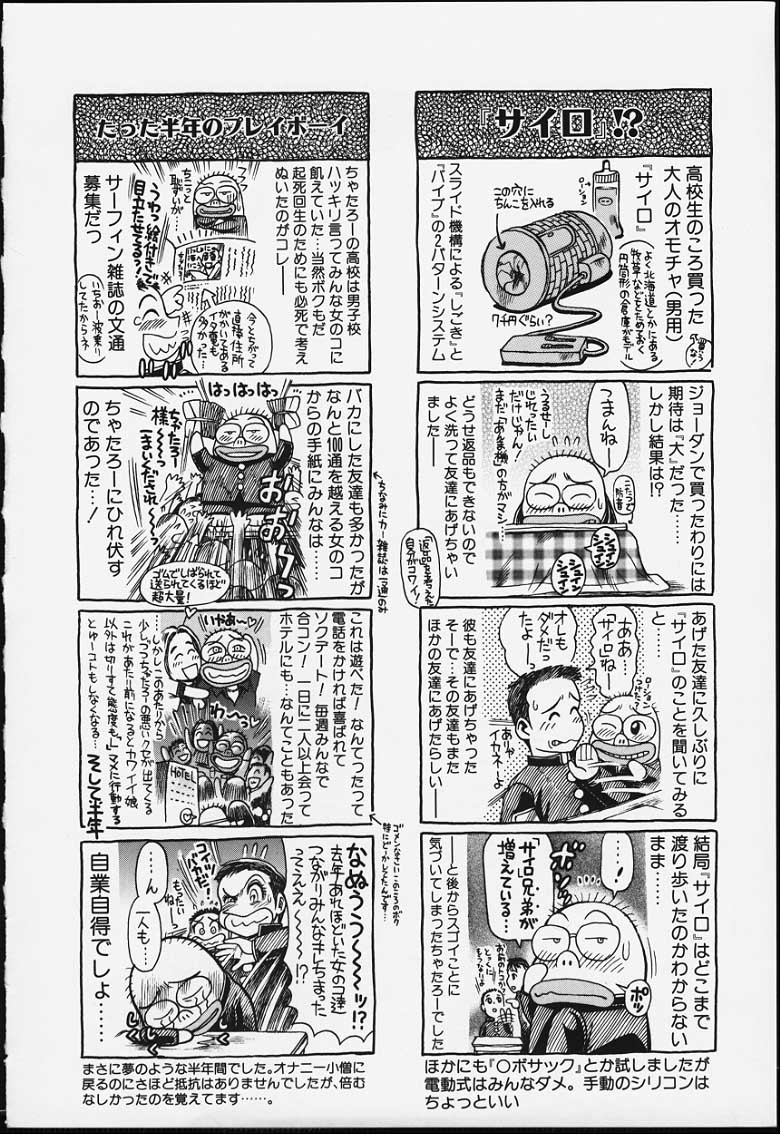 『サイロ』!?
高校生のころ買った
大人のオモチャ(男用)
『サイロ』
(よく北海道とかにある
牧草などをためておく
円筒形の倉庫がモデル
ローション
この穴に
ちんこを入れる
7千円ぐらい?
スライド機構による『しごき』と
『バイブ』の2パターンシステム
ジョーダンで買ったわりには
期待は『大』だった……
しかし結果は!?
つまんねー
こたつで
うるせーし
じれったい
だけじゃん!
まだ「あんま機」の方がマシ…
どうせ返品もできないので
よく洗って友達にあげちゃい
ました——
「返品」を考えた
自分がコワイ!
あげた友達に久しぶりに
『サイロ』のことを聞いてみる
と……
ああ…
サイロね
オレも
ダメだっ
たよー
ありゃ
イカネーよ
彼も友達にあげちゃった
そーで…その友達もまた
ほかの友達にあげたらしい——
結局『サイロ』はどこまで
渡り歩いたのかわからない
まま………
…!
ボソッ
「サイロ兄弟が
増えている…」
ポッ
——と後からスゴイことに
気づいてしまったちゃたろーでした
ほかにも『〇ボサック』とか試しましたが
電動式はみんなダメ。手動のシリコンは
ちょっといい
たった半年のプレイボーイ
ちゃたろーの高校は男子校
ハッキリ言ってみんな女のコに
飢えていた…当然ボクもだ
起死回生のためにも必死で考え
ぬいたのがコレ——
ちこっと
恥ずいが…
うわっ絵付きで
目立たせてるっ!
今とちがって
直接住所
がかいてある
イタズラも
多かった…
サーフィン雑誌の文通
募集だっ
いちおー波乗り
してたからネ
バカにした友達も多かったが
なんと100通を越える女のコ
からの手紙にみんなは……
はっはっはっ
ちゃたろー
様〜〜っ
おお〜っ
ゴムでしばられて
送られてくるほど
超大量!
ちゃたろーにひれ伏す
のであった…!
ちなみにカー雑誌は「2通」のみ
これは遊べた! なんてったって
電話をかければ喜ばれて
ソクデート! 毎週みんなで
合コン! 一日に二人以上会って
ホテルにも…なんてこともあった
いやあ〜
わ〜っ
HOTEL
しかしこのあたりから
少しずつちゃたろーの悪いクセが出てくる
これがあたり前になるとカワイイ娘
以外は切りすて態度も!マメに行動する
とゆーコトもしなくなる…
そして半年
なぬうう〜〜〜ッ!?
去年あれほどいた女のコ達
つながりみんなキレちまった
ってええぇ〜〜〜!?
コイツ
バカだ…
もったい
ねぇ
……ん
一人も…
自業自得でしょ……
まさに夢のような半年間でした。オナニー小僧に
戻るのにさほど抵抗はありませんでしたが、倍む
なしかったのを覚えてます……。